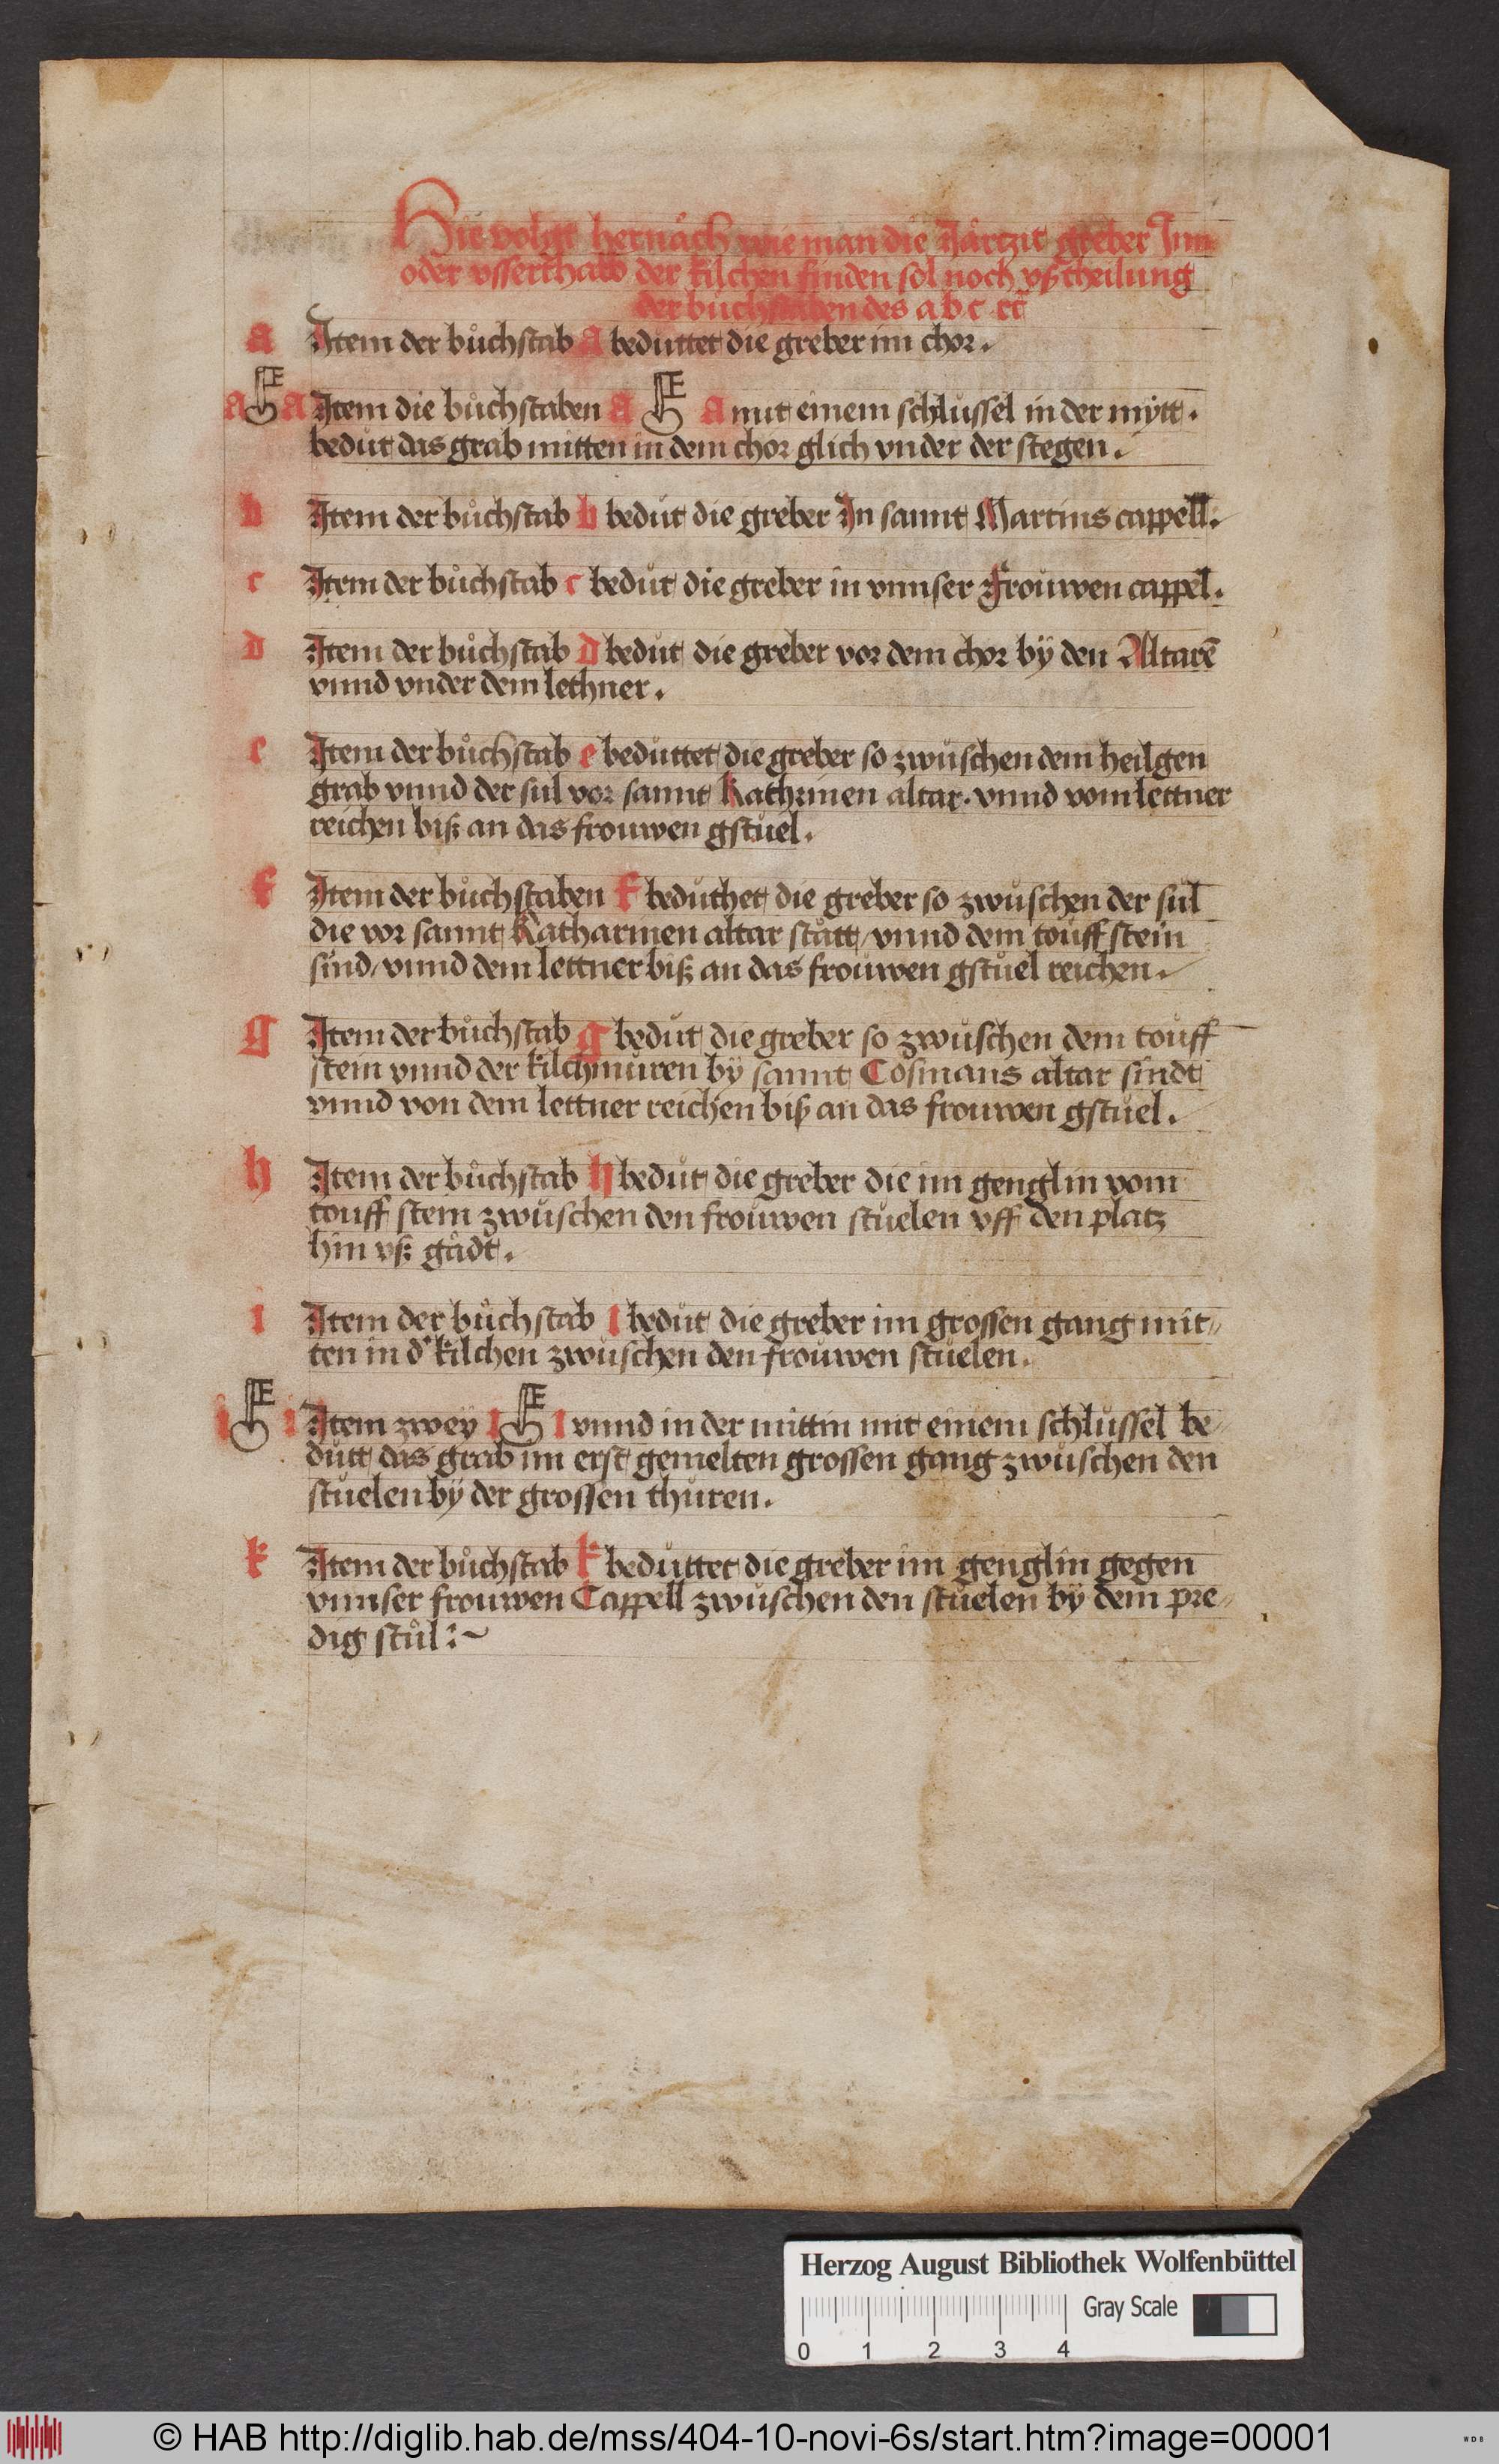 Hie volgt hernăch wie man die Jărtzit greber Jnn
oder vsserthalb der kilchen finden sol noch vßtheilung
der bůchstaben des a b c rc̄
a Item der bůchstab a bedüttet die greber im chor.
a a Item die bůchstaben a a mit einem schlüssel in der mÿtt.
bedüt das grab mitten in dem chor glich vnder der stegen.
b Item der bůchstab b bedüt die greber In sannt Martins cappell.
c Item der bůchstab c bedüt die greber in vnnser Frouwen cappel.
D Item der bůchstab D bedüt die greber vor dem chor bÿ den Altarē
vnnd vnder dem lethner.
e Item der bůchstab e bedüttet die greber so zwüschen dem heilgen
grab vnnd der sul vor sannt Kathrinen altar. vnnd vom lettner
reichen biß an das frouwen gstüel.
f Item der bůchstaben f bedüthet die greber so zwüschen der sul
die vor sannt Katharinen altar stătt/ vnnd dem touffstein
sind/ vnnd dem lettner biß an das frouwen gstüel reichen.
g Item der bůchstab g bedüt die greber so zwüschen dem touff
stein vnnd der kilchmuren bÿ sannt Cosmans altar sindt
vnnd von dem lettner reichen biß an das frouwen gstüel.
h Item der bůchstab h bedüt die greber die im genglin vom
touff stein zwüschen den frouwen stüelen vff den platz
hin vß gădt.
i Item der bůchstab I bedüt die greber im grossen gang mit//
ten in d' kilchen zwüschen den frouwen stüelen.
i i Item zwey I I vnnd in der mittin mit einem schlüssel be//
dütt das grab im erst gemelten grossen gang zwüschen den
stüelen bÿ der grossen thüren.
k Item der bůchstab k bedüttet die greber im genglin gegen
vnnser frouwen Cappell zwüschen den stüelen bÿ dem pre//
dig stůl :~
Herzog August Bibliothek Wolfenbüttel
0 1 2 3 4 Gray Scale
© HAB http://diglib.hab.de/mss/404-10-novi-6s/start.htm?image=00001
WDB